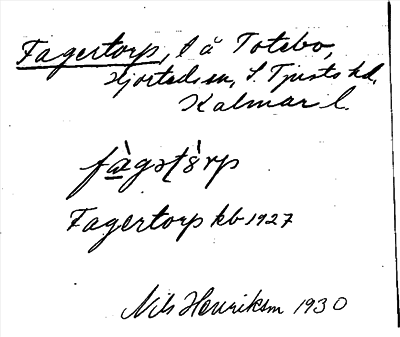 Fagertorp, l å Totebo,
Hjorted sn, S. Tjusts hd.
Kalmar l.
fàgəṭò̤rp
Fagertorp kb 1927
Nils Henriksm 1930